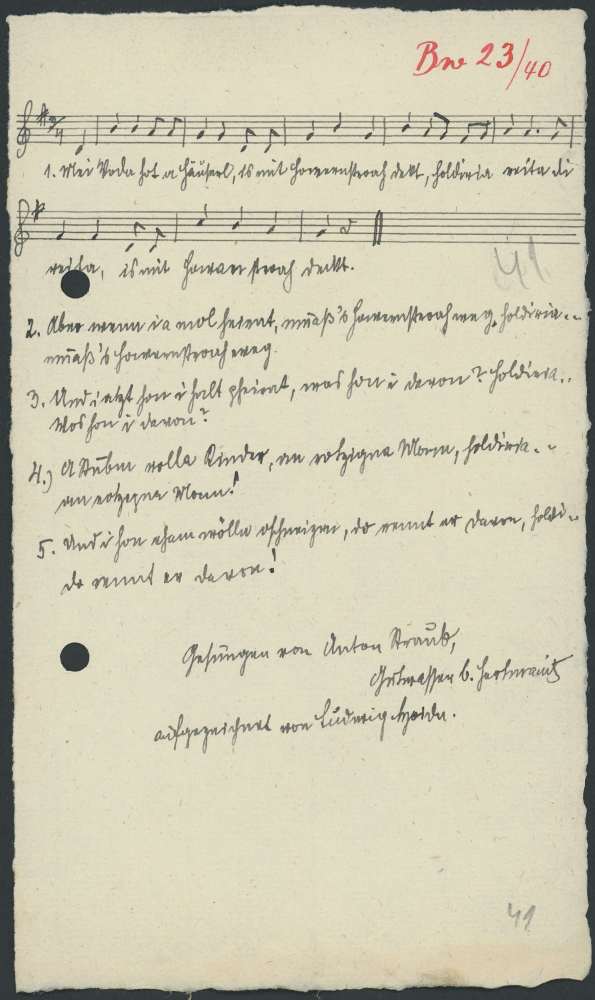 Bw 23/40
1. Mei Voda hot a Häuserl, is mit Howernstroah deckt, holdiria reita di
reita, is mit Howan stroah deckt.
41.
2. Aber wenn i a mol heirat, muaß's Howernstroah weg, holdiria..
muaß's Howernstroah weg.
3. Und iatzt hon i holt gheirat, wos hon i davon? holdiria..
Wos hon i davon?
4.) A Stubm volla Kinder, an rotzigna Monn, holdiria..
an rotzigna Monn!
5. Und i hon eham wölln oschneizn, do rennt er davon, holdi..
do rennt er davon!
Gesungen von Anton Straub,
Gutwasser b. Hartmanitz
aufgezeichnet von Ludwig
41